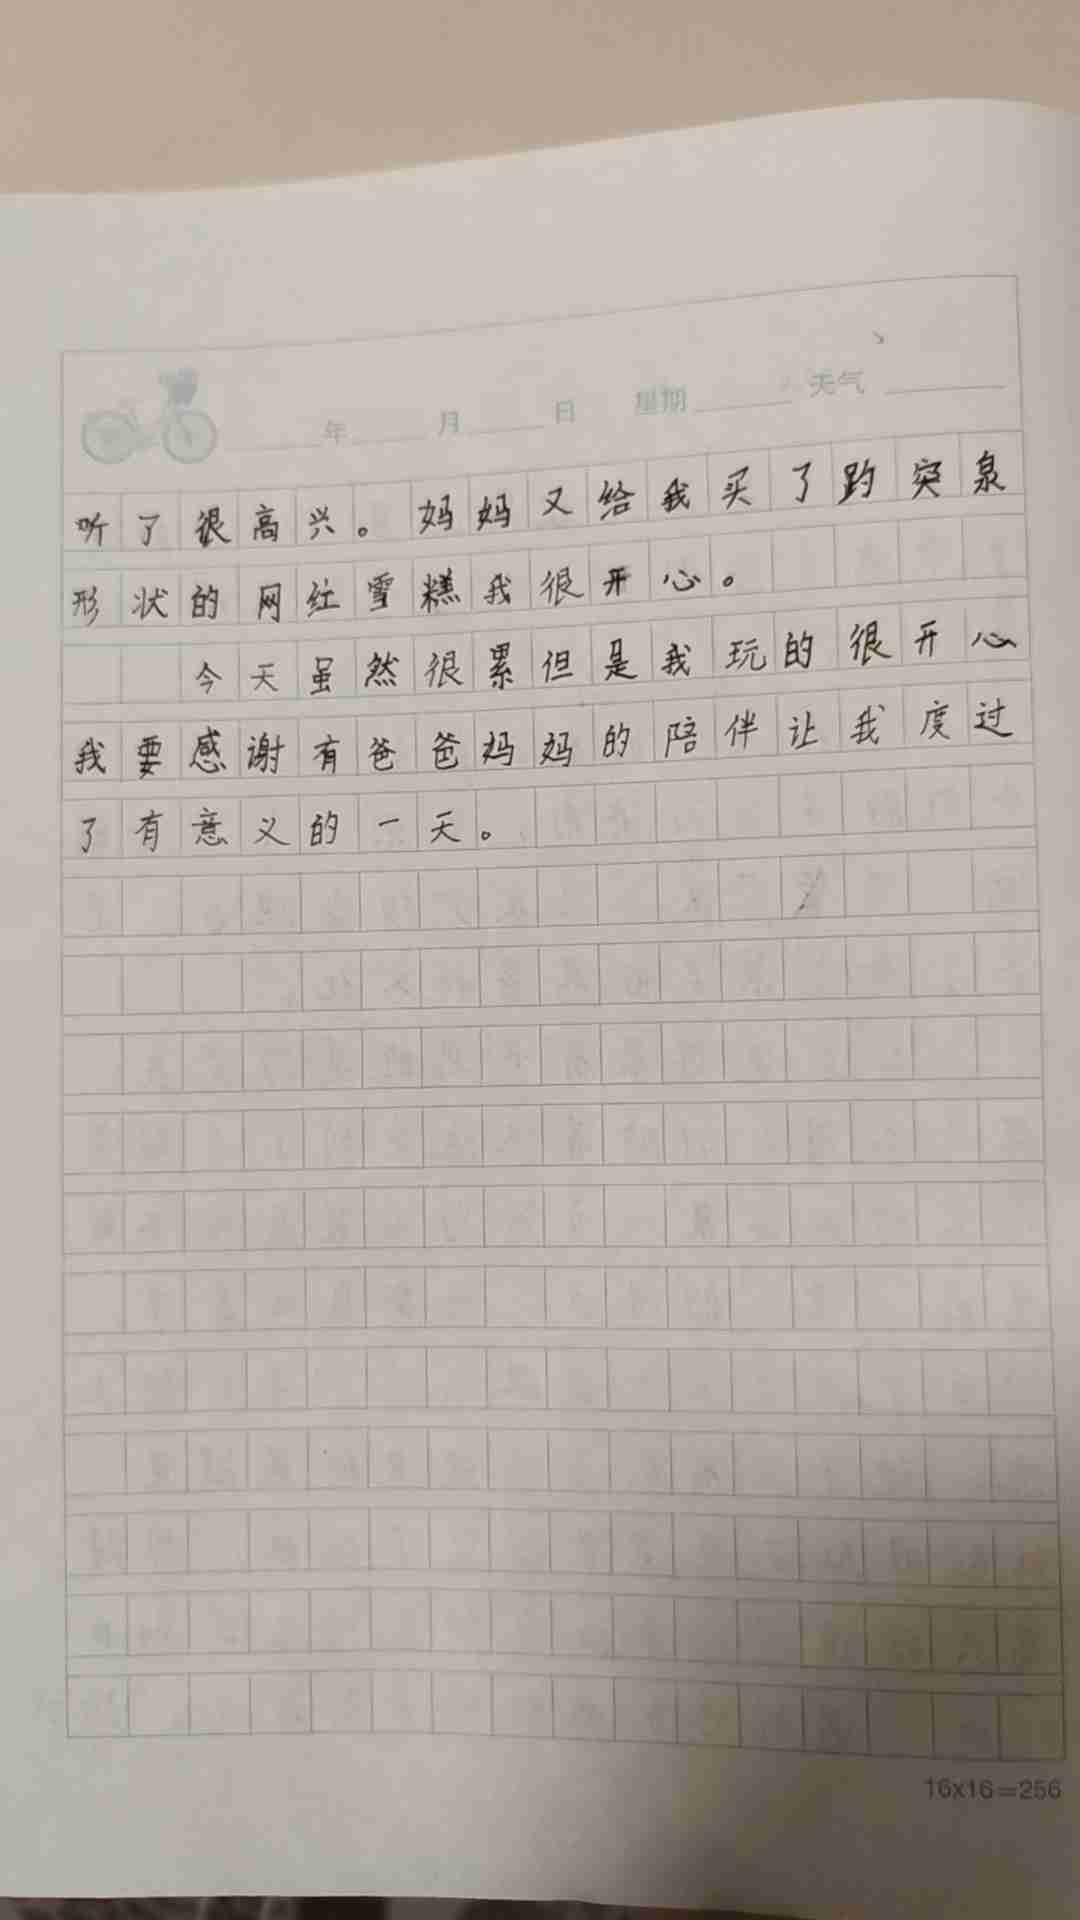 年 月 日 星期 天气
听了很高兴。妈妈又给我买了趵突泉
形状的网红雪糕我很开心。
今天虽然很累但是我玩的很开心
我要感谢有爸爸妈妈的陪伴让我度过
了有意义的一天。
16x16=256